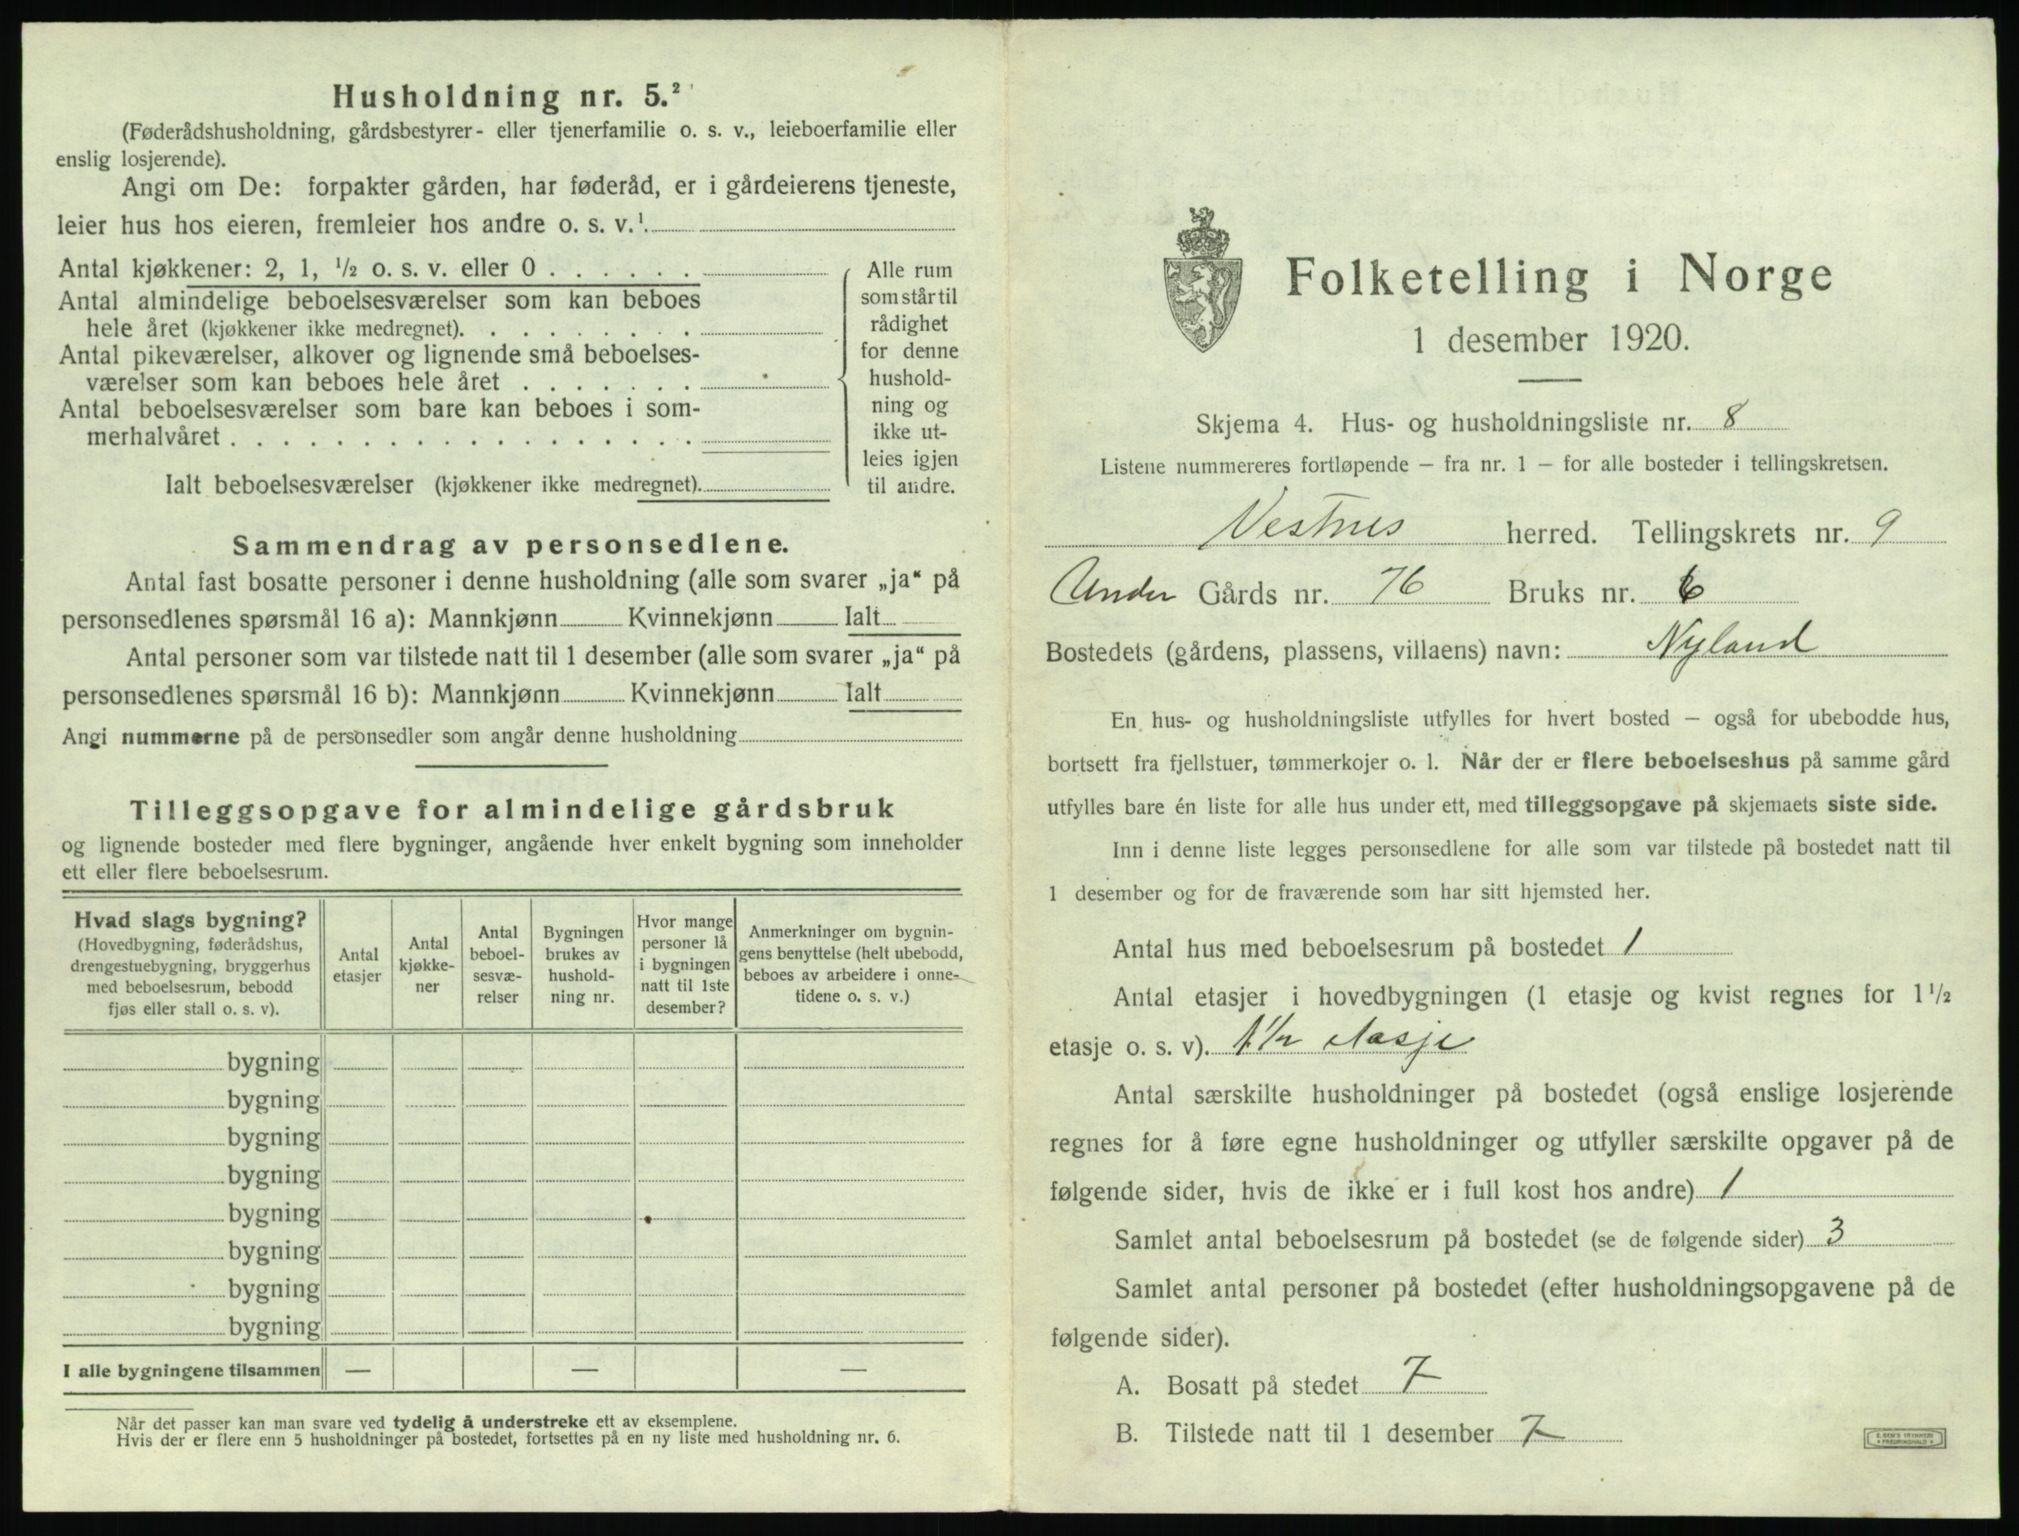 Husholdning nr. 5.²
(Føderådshusholdning, gårdsbestyrer- eller tjenerfamilie o. s. v., leieboerfamilie eller
enslig losjerende).
Angi om De: forpakter gården, har føderåd, er i gårdeierens tjeneste,
leier hus hos eieren, fremleier hos andre o. s. v.¹
Antal kjøkkener: 2, 1, ½ o. s. v. eller 0 . . . . . .
Antal almindelige beboelsesværelser som kan beboes
hele året (kjøkkener ikke medregnet). . . . . . . . .
Antal pikeværelser, alkover og lignende små beboelses-
værelser som kan beboes hele året . . . . . . .
Antal beboelsesværelser som bare kan beboes i som-
merhalvåret . . . . . . . . . . . . . . . . . .
Ialt beboelsesværelser (kjøkkener ikke medregnet).
Alle rum
som står til
rådighet
for denne
hushold-
ning og
ikke ut-
leies igjen
til andre.
Sammendrag av personsedlene.
Antal fast bosatte personer i denne husholdning (alle som svarer „ja“ på
personsedlenes spørsmål 16 a): Mannkjønn Kvinnekjønn Ialt
Antal personer som var tilstede natt til 1 desember (alle som svarer „ja“ på
personsedlenes spørsmål 16 b): Mannkjønn Kvinnekjønn Ialt
Angi nummerne på de personsedler som angår denne husholdning
Tilleggsopgave for almindelige gårdsbruk
og lignende bosteder med flere bygninger, angående hver enkelt bygning som inneholder
ett eller flere beboelsesrum.
Hvad slags bygning?
(Hovedbygning, føderådshus,
drengestuebygning, bryggerhus
med beboelsesrum, bebodd
fjøs eller stall o. s. v).
Antal
etasjer
Antal
kjøkke-
ner
Antal
beboel-
sesvæ-
relser
Bygningen
brukes av
hushold-
ning nr.
Hvor mange
personer lå
i bygningen
natt til 1ste
desember?
Anmerkninger om bygnin-
gens benyttelse (helt ubebodd,
beboes av arbeidere i onne-
tidene o. s. v.)
bygning
bygning
bygning
bygning
bygning
bygning
bygning
bygning
I alle bygningene tilsammen — — —
Når det passer kan man svare ved tydelig å understreke ett av eksemplene.
Hvis der er flere enn 5 husholdninger på bostedet, fortsettes på en ny liste med husholdning nr. 6.
Folketelling i Norge
1 desember 1920.
Skjema 4. Hus- og husholdningsliste nr. 8
Listene nummereres fortløpende – fra nr. 1 – for alle bosteder i tellingskretsen.
Vestnes herred. Tellingskrets nr. 9
Under Gårds nr. 76 Bruks nr. 6
Bostedets (gårdens, plassens, villaens) navn: Nyland
En hus- og husholdningsliste utfylles for hvert bosted – også for ubebodde hus,
bortsett fra fjellstuer, tømmerkojer o. l. Når der er flere beboelseshus på samme gård
utfylles bare én liste for alle hus under ett, med tilleggsopgave på skjemaets siste side.
Inn i denne liste legges personsedlene for alle som var tilstede på bostedet natt til
1 desember og for de fraværende som har sitt hjemsted her.
Antal hus med beboelsesrum på bostedet 1
Antal etasjer i hovedbygningen (1 etasje og kvist regnes for 1½
etasje o. s. v). 1½ etasje
Antal særskilte husholdninger på bostedet (også enslige losjerende
regnes for å føre egne husholdninger og utfyller særskilte opgaver på de
følgende sider, hvis de ikke er i full kost hos andre) 1
Samlet antal beboelsesrum på bostedet (se de følgende sider) 3
Samlet antal personer på bostedet (efter husholdningsopgavene på de
følgende sider).
A. Bosatt på stedet 7
B. Tilstede natt til 1 desember 7